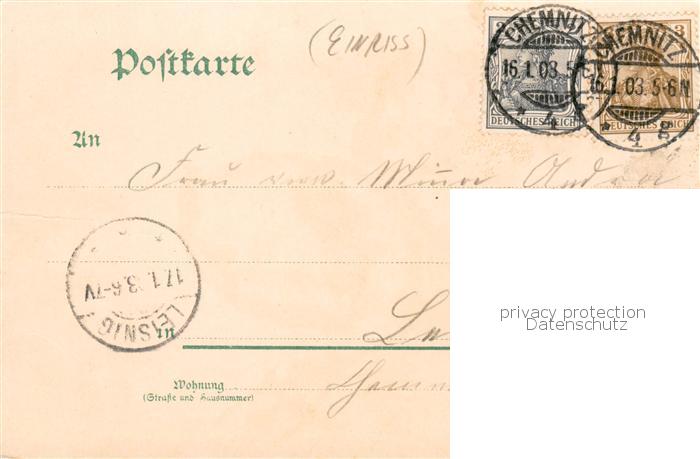 (EINRISS)
Postkarte
CHEMNITZ
16.1.03.5-6N
* 4 g.
2
DEUTSCHES REICH
CHEMNITZ
16.1.03.5-6N
* 4 g.
3
DEUTSCHES REICH
An
Frau verw. Minna
17.1.03.6-7V
LEISNIG
in
privacy protection
Datenschutz
Wohnung
(Straße und Hausnummer)